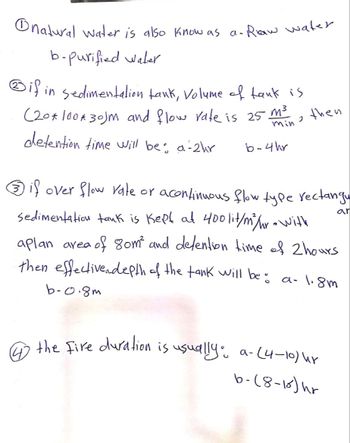 ① natural water is also Know as a-Raw water
b-purified water
② if in sedimentation tank, Volume of tank is
(20*100*30)m and flow rate is 25 m³/min, then
detention time will be: a-2hr b-4hr
③ if over flow rate or acontinuous flow type rectangu
ar
sedimentation tank is Kept at 400lit/m²/hr. with
aplan area of 80m² and detention time of 2hours
then effective depth of the tank will be: a- 1.8m
b-0.8m
④ the Fire duration is usually: a-(4-10) hr
b-(8-18) hr